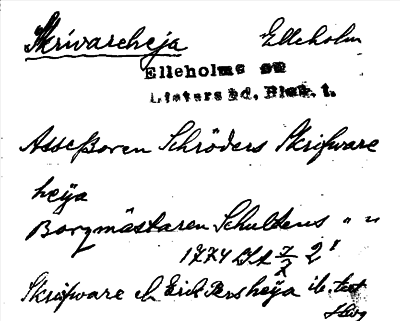 Skrivareheja Elleholm
Elleholms sn
Listers hd, Blek. l.
Assessoren Schröders Skrifware
heÿa
Borgmästaren Schultens " "
1774 2"
Skrifware ch Erik Pers heÿa ib.